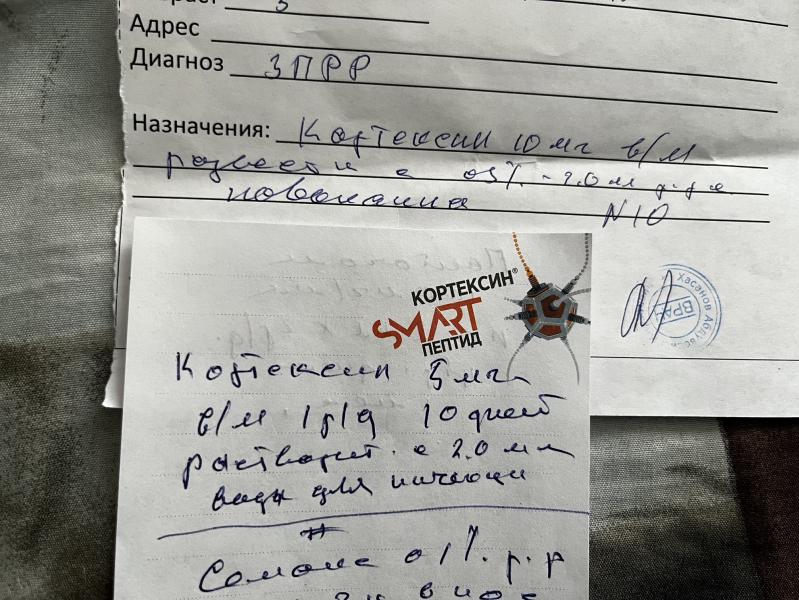 3
Адрес
Диагноз ЗПРР
Назначения: Кортексин 10 мг в/м
развести с 0,5% - 2.0 мл р-р-а
новокаина N10
Хасанов
ВРАЧ
КОРТЕКСИН®
SMART
ПЕПТИД
Кортексин 5 мг
в/м 1 р/д 10 дней
растворит. с 2.0 мл
воды для инъекци
#
Семакс 0,1% р-р
в нос